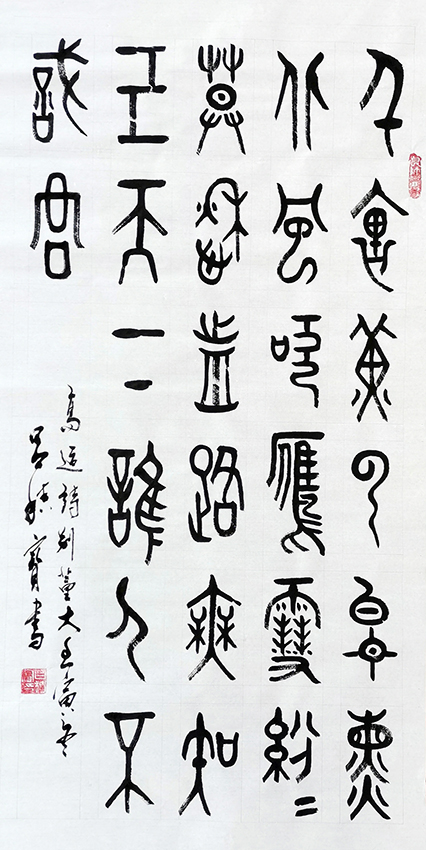 千里黃云白日熏
北風吹雁雪紛〻
莫愁前路無知
己天下誰人不
識君
高適詩別董大壬寅冬
寶書